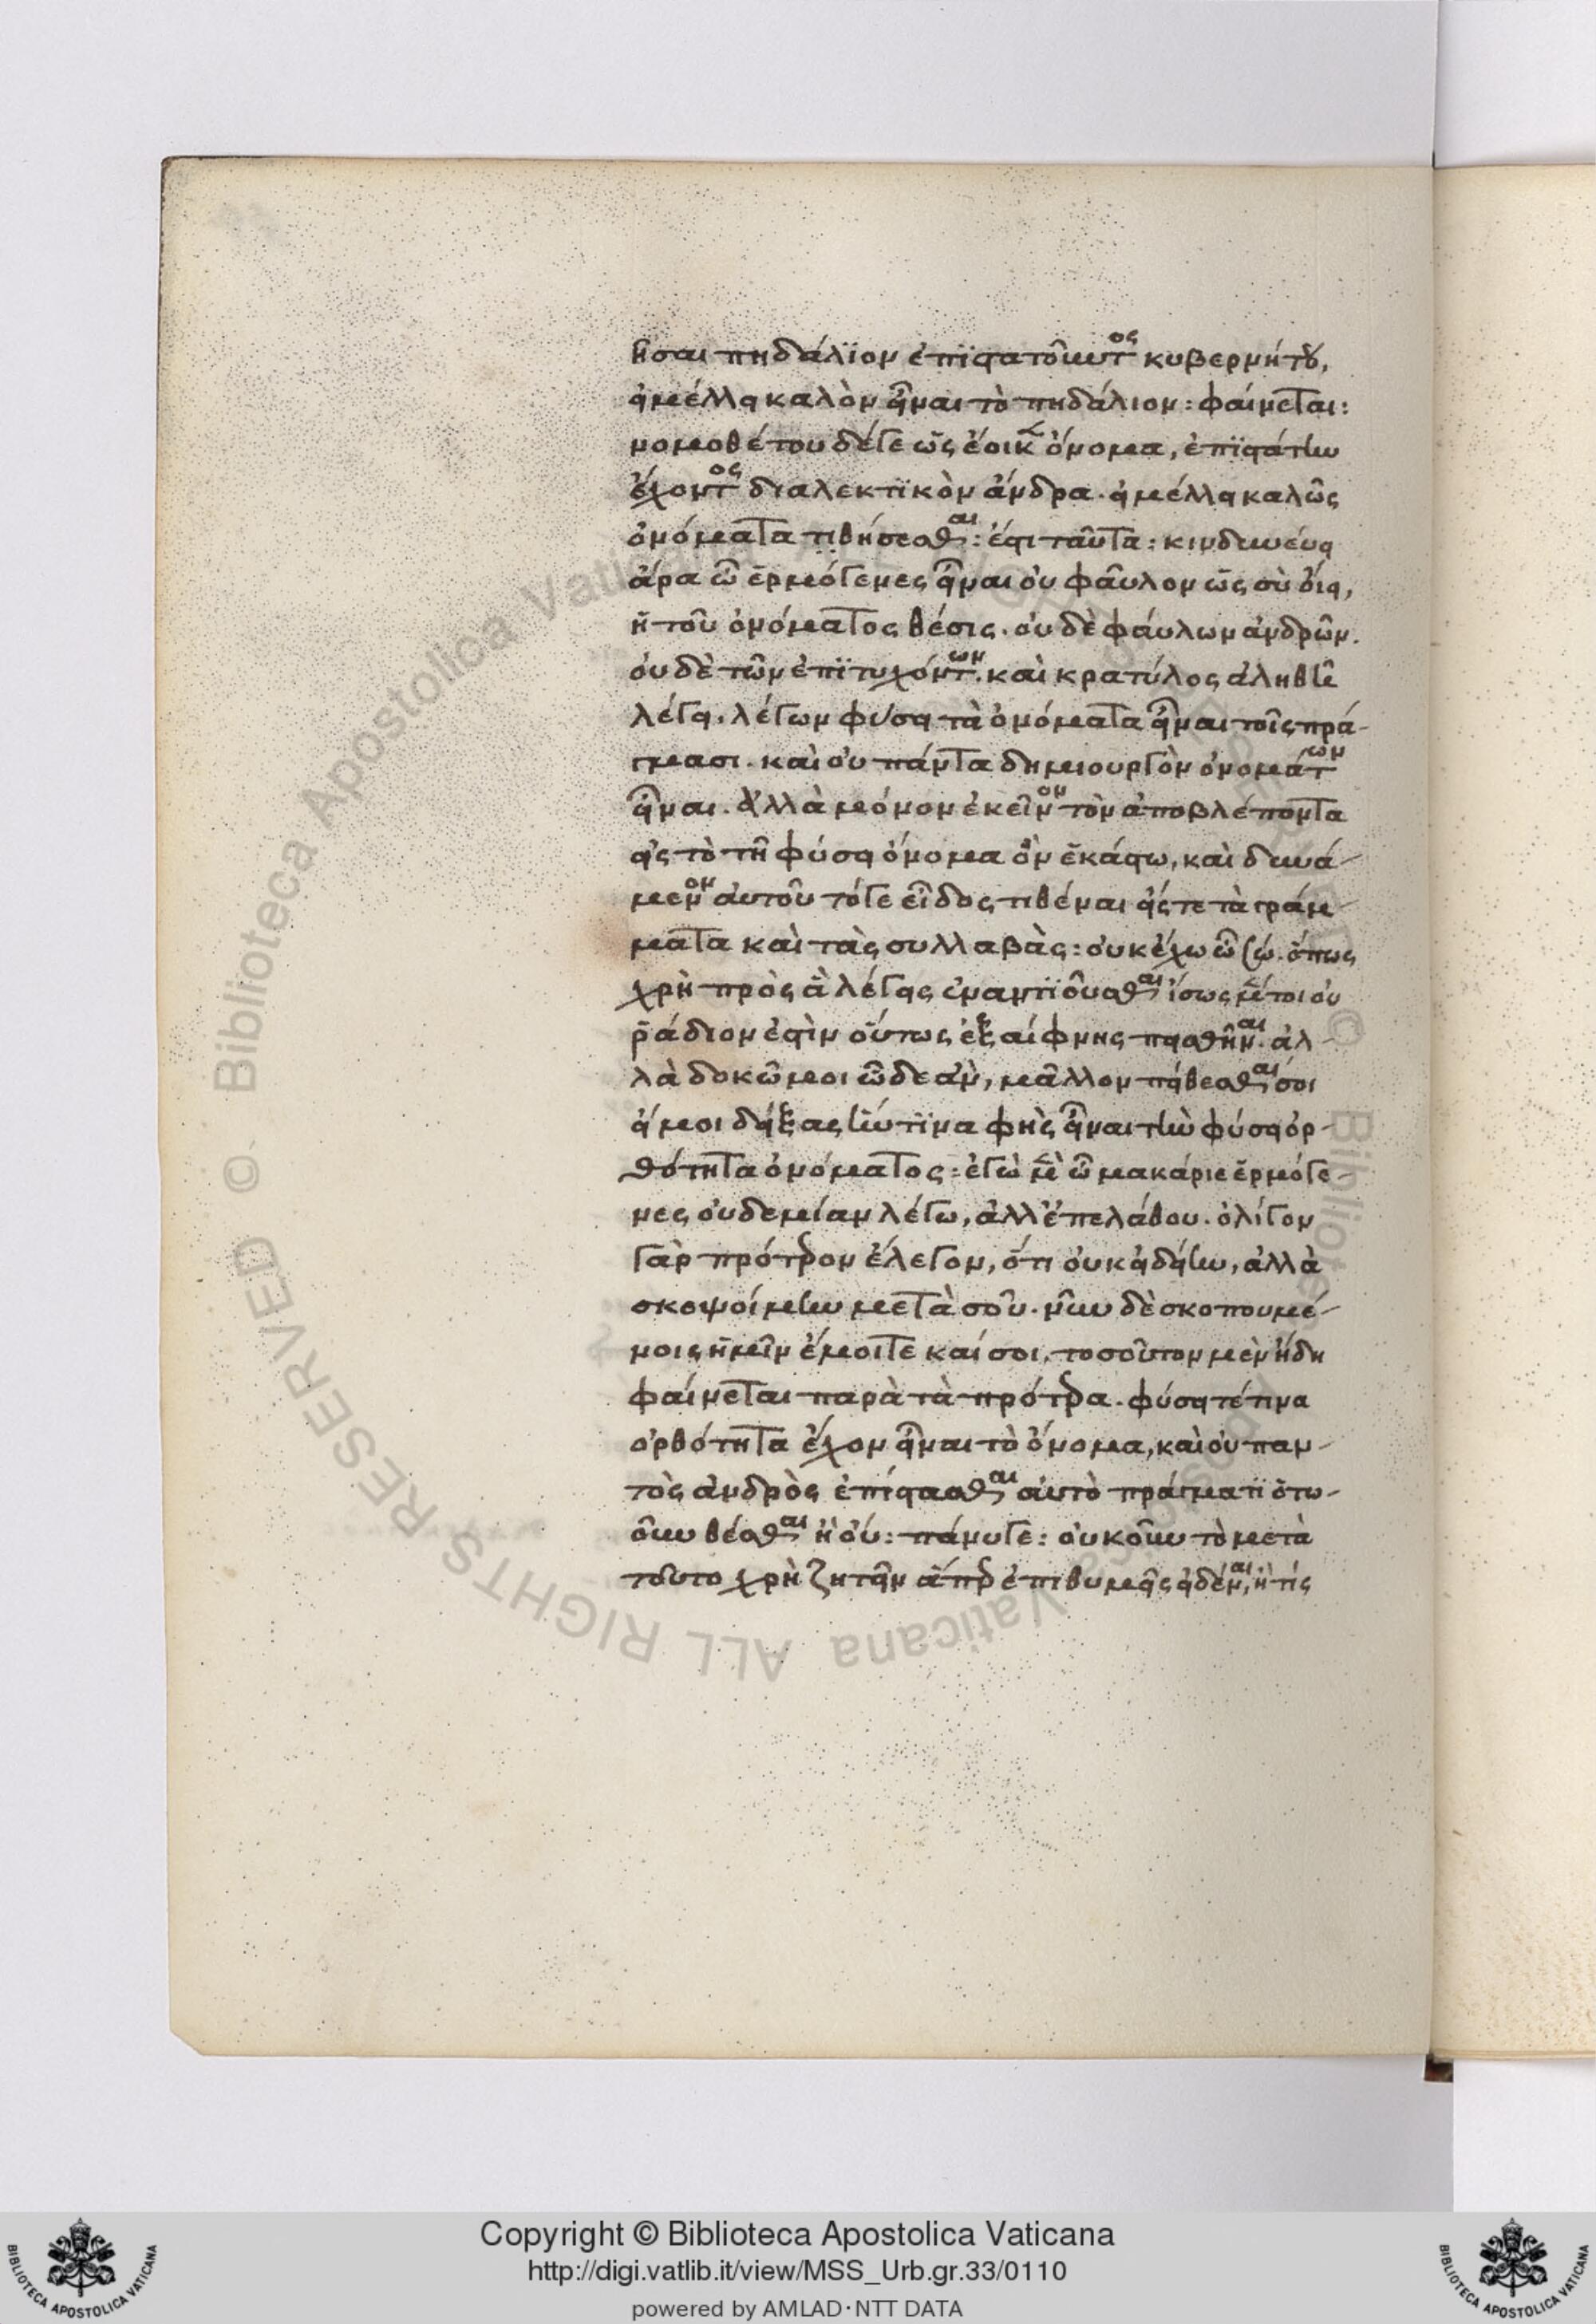 ῆσαι πηδάλϊον ἐπϊστατοῦντος κυβερνήτου,
εἰ μέλλει καλὸν εἶναι τὸ πηδάλιον: φαίνεται:
νομοθέτου δέγε ὡς ἔοικεν ὄνομα, ἐπϊστάτην
ἔχοντος διαλεκτϊκὸν ἄνδρα. εἰ μέλλει καλῶς
ὀνόματα τιθήσεσθαι: ἔστι ταῦτα: κινδυνεύει
ἄρα ὦ ἑρμόγενες εἶναι οὐ φαῦλον ὡς σὺ οἴει,
ἡ τοῦ ὀνόματος θέσις. οὐδὲ φάυλων ἀνδρῶν.
οὐδὲ τῶν ἐπϊτυχόντων. καὶ κρατύλος ἀληθῆ
λέγει. λέγων φύσει τὰ ὀνόματα εἶναι τοῖς πρά-
γμασι. καὶ οὐ πάντα δημιουργὸν ὀνομάτων
εἶναι. ἀλλὰ μόνον ἐκεῖνον τὸν ἀποβλέποντα
εἰς τὸ τῆ φύσει ὄνομα ὂν ἑκάστω, καὶ δυνά-
μενον αὐτοῦ τόγε εἶδος τιθέναι εἴς τε τὰ γράμ-
ματα καὶ τὰς συλλαβὰς: οὐκ ἔχω ὦ σώ. ὅπως
χρὴ πρὸς ἃ λέγεις ἐναντϊοῦσθαι ἴσως μέντοι οὐ
ῥάδιον ἐστὶν οὕτως ἐξαίφνης πεισθῆναι. ἀλ-
λὰ δοκῶ μοι ὧδε ἂν, μᾶλλον πείθεσθαι σοι
εἴ μοι δείξας ἥντϊνα φὴς εἶναι τὴν φύσει ὀρ-
θότητα ὀνόματος: ἐγὼ μὲν ὦ μακάριε ἑρμόγε-
νες οὐδεμίαν λέγω, ἀλλ' ἐπελάθου. ὀλίγον
γὰρ πρότερον ἔλεγον, ὅτι οὐκ εἰδείην, ἀλλὰ
σκεψοίμην μετὰ σοῦ. νῦν δὲ σκοπουμέ-
νοις ἡμῖν ἐμοίτε καί σοι, τοσοῦτον μὲν ἤδη
φαίνεται παρὰ τὰ πρότερα. φύσει τέ τινα
ὀρθότητα ἔχον εἶναι τὸ ὄνομα, καὶ οὐ παν-
τὸς ἀνδρὸς ἐπίστασθαι αὐτὸ πράγματϊ ὅτω-
οῦν θέσθαι ἢ οὔ: πάνυγε: οὐκοῦν τὸ μετὰ
τοῦτο χρὴ ζητεῖν εἴπερ ἐπιθυμεῖς εἰδέναι, ἥτίς
Copyright © Biblioteca Apostolica Vaticana
http://digi.vatlib.it/view/MSS_Urb.gr.33/0110
powered by AMLAD·NTT DATA